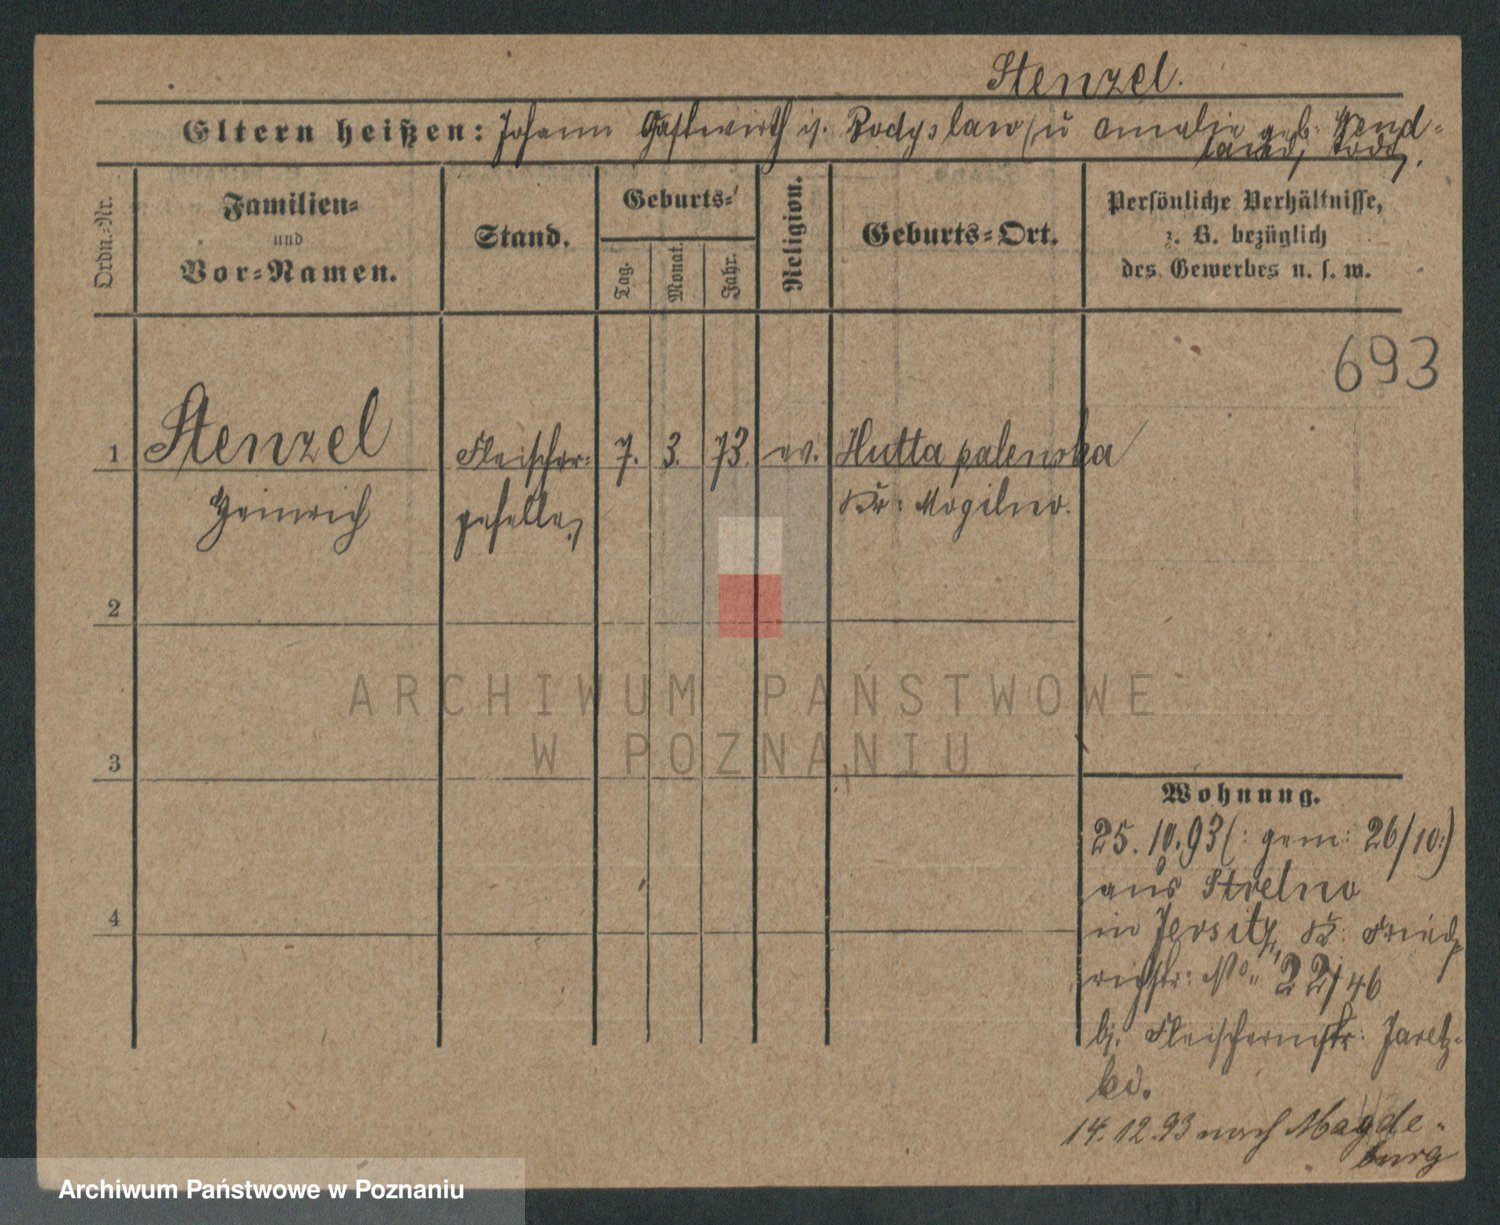 Stenzel.
Eltern heißen: Johann Gastwirth in Rodyslaw u Amalie geb: Wend-
land, todt.
Ordn.-Nr.
Familien-
und
Vor-Namen.
Stand.
Geburts-
Tag.
Monat.
Jahr.
Religion.
Geburts-Ort.
Persönliche Verhältnisse,
z. B. bezüglich
des Gewerbes u. s. w.
693
1 Stenzel Fleischer- 7. 3. 73. ev. Hutta palenska
Heinrich geselle, Kr: Mogilno.
2
3
4
ARCHIWUM PAŃSTWOWE
W POZNANIU
Wohnung.
25.10.93 (: gem: 26/10:)
aus Strelno
in Jersitz, Fried-
richstr: No 22/46
bj. Fleischermstr: Jaretz-
ki.
14.12.93 nach Magde-
burg
Archiwum Państwowe w Poznaniu